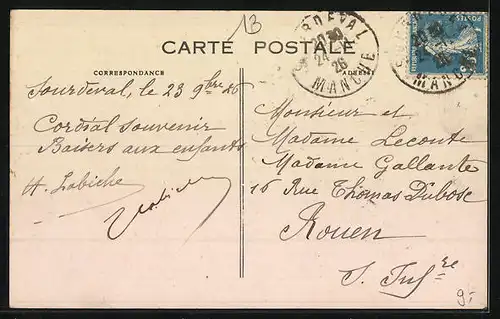 13
CARTE POSTALE
CORRESPONDANCE
Sourdeval, le 23 9bre 26
Cordial souvenir
Baisers aux enfants
H. Labiche
Labiche
SOURDEVAL
24
26
MANCHE
MANCHE
Monsieur et
Madame Leconte
Madame Gallante
16 Rue Thomas Dubosc
Rouen
S. Infre
9.-